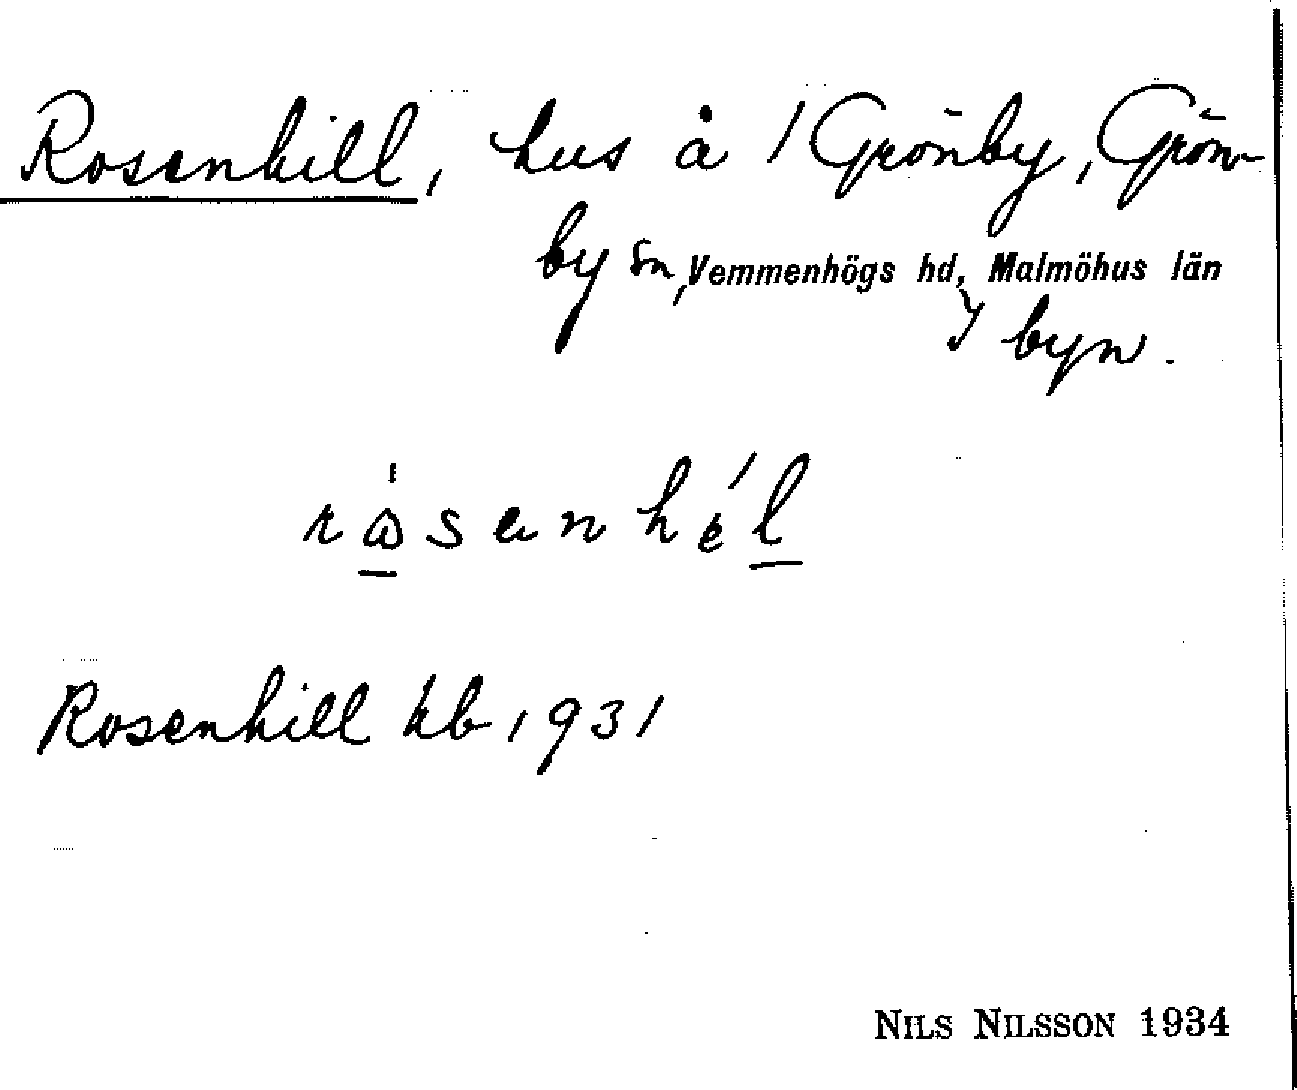 Rosenhill, hus å 1 Grönby, Grön-
by sn, Vemmenhögs hd, Malmöhus län
I byn.
Rosenhill kb 1931
NILS NILSSON 1934